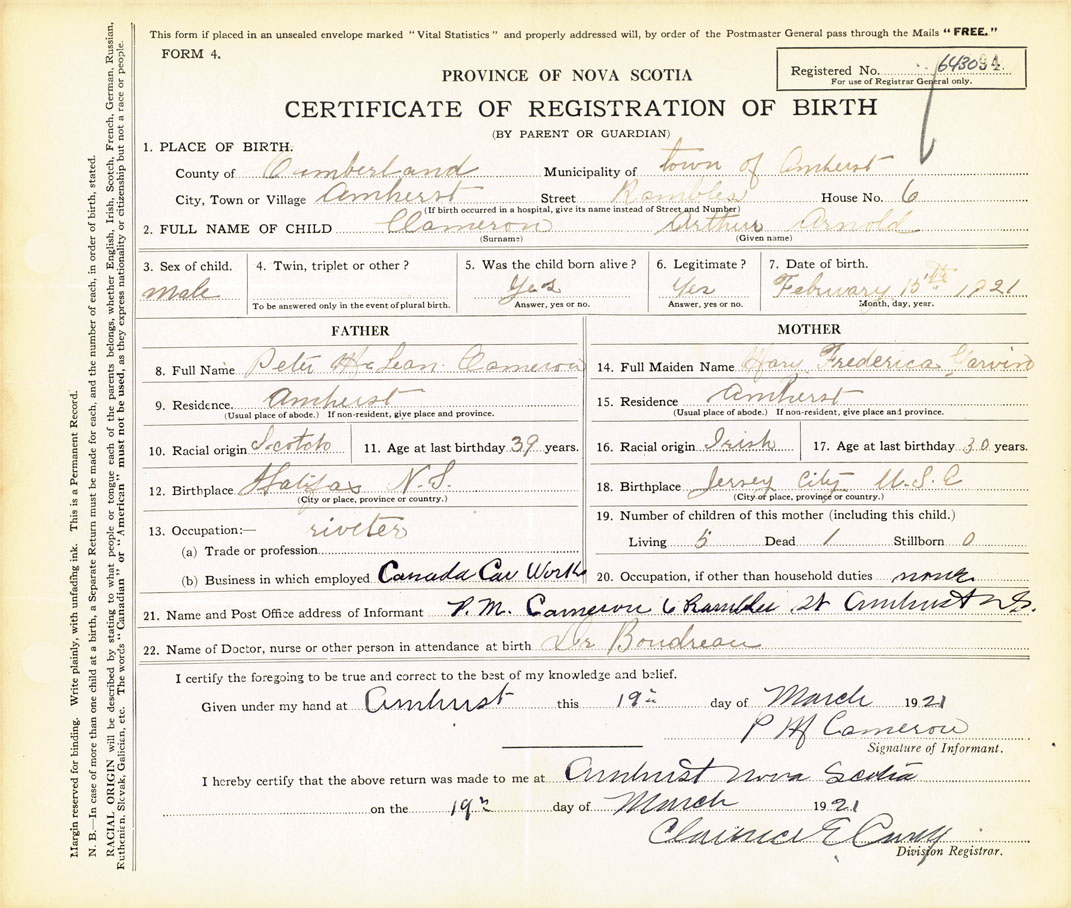 This form if placed in an unsealed envelope marked "Vital Statistics" and properly addressed will, by order of the Postmaster General pass through the Mails "FREE."
FORM 4.
Registered No. 64304
For use of Registrar General only.
PROVINCE OF NOVA SCOTIA
CERTIFICATE OF REGISTRATION OF BIRTH
(BY PARENT OR GUARDIAN)
1. PLACE OF BIRTH.
County of Cumberland Municipality of town of Amherst
City, Town or Village Amherst Street Rambles House No. 6
(If birth occurred in a hospital, give its name instead of Street and Number)
2. FULL NAME OF CHILD Cameron Arthur Arnold
(Surname) (Given name)
3. Sex of child. 4. Twin, triplet or other? 5. Was the child born alive? 6. Legitimate? 7. Date of birth.
Male Yes Yes February 15th 1921
To be answered only in the event of plural birth. Answer, yes or no. Answer, yes or no. Month, day, year.
FATHER
8. Full Name Peter McLean Cameron
9. Residence. Amherst
(Usual place of abode.) If non-resident, give place and province.
10. Racial origin Scotch 11. Age at last birthday 39 years.
12. Birthplace Halifax N.S.
(City or place, province or country.)
13. Occupation:— riveter
(a) Trade or profession
(b) Business in which employed Canada Car Works
MOTHER
14. Full Maiden Name Mary Frederica Garvin
15. Residence Amherst
(Usual place of abode.) If non-resident, give place and province.
16. Racial origin Irish 17. Age at last birthday 30 years.
18. Birthplace Jersey City U.S.
(City or place, province or country.)
19. Number of children of this mother (including this child.)
Living 5 Dead 1 Stillborn 0
20. Occupation, if other than household duties none
21. Name and Post Office address of Informant P.M. Cameron 6 Rambles St Amherst N.S.
22. Name of Doctor, nurse or other person in attendance at birth Dr Boudreau
I certify the foregoing to be true and correct to the best of my knowledge and belief.
Given under my hand at Amherst this 19th day of March 1921
P M Cameron
Signature of Informant.
I hereby certify that the above return was made to me at Amherst Nova Scotia
on the 19th day of March 1921
Clarence E
Division Registrar.
Margin reserved for binding. Write plainly, with unfading ink. This is a Permanent Record.
N. B.—In case of more than one child at a birth, a Separate Return must be made for each, and the number of each, in order of birth, stated.
RACIAL ORIGIN will be described by stating to what people or tongue each of the parents belongs, whether English, Irish, Scotch, French, German, Russian,
Ruthenien, Slovak, Galician, etc. The words "Canadian" or "American" must not be used, as they express nationality or citizenship but not a race or people.